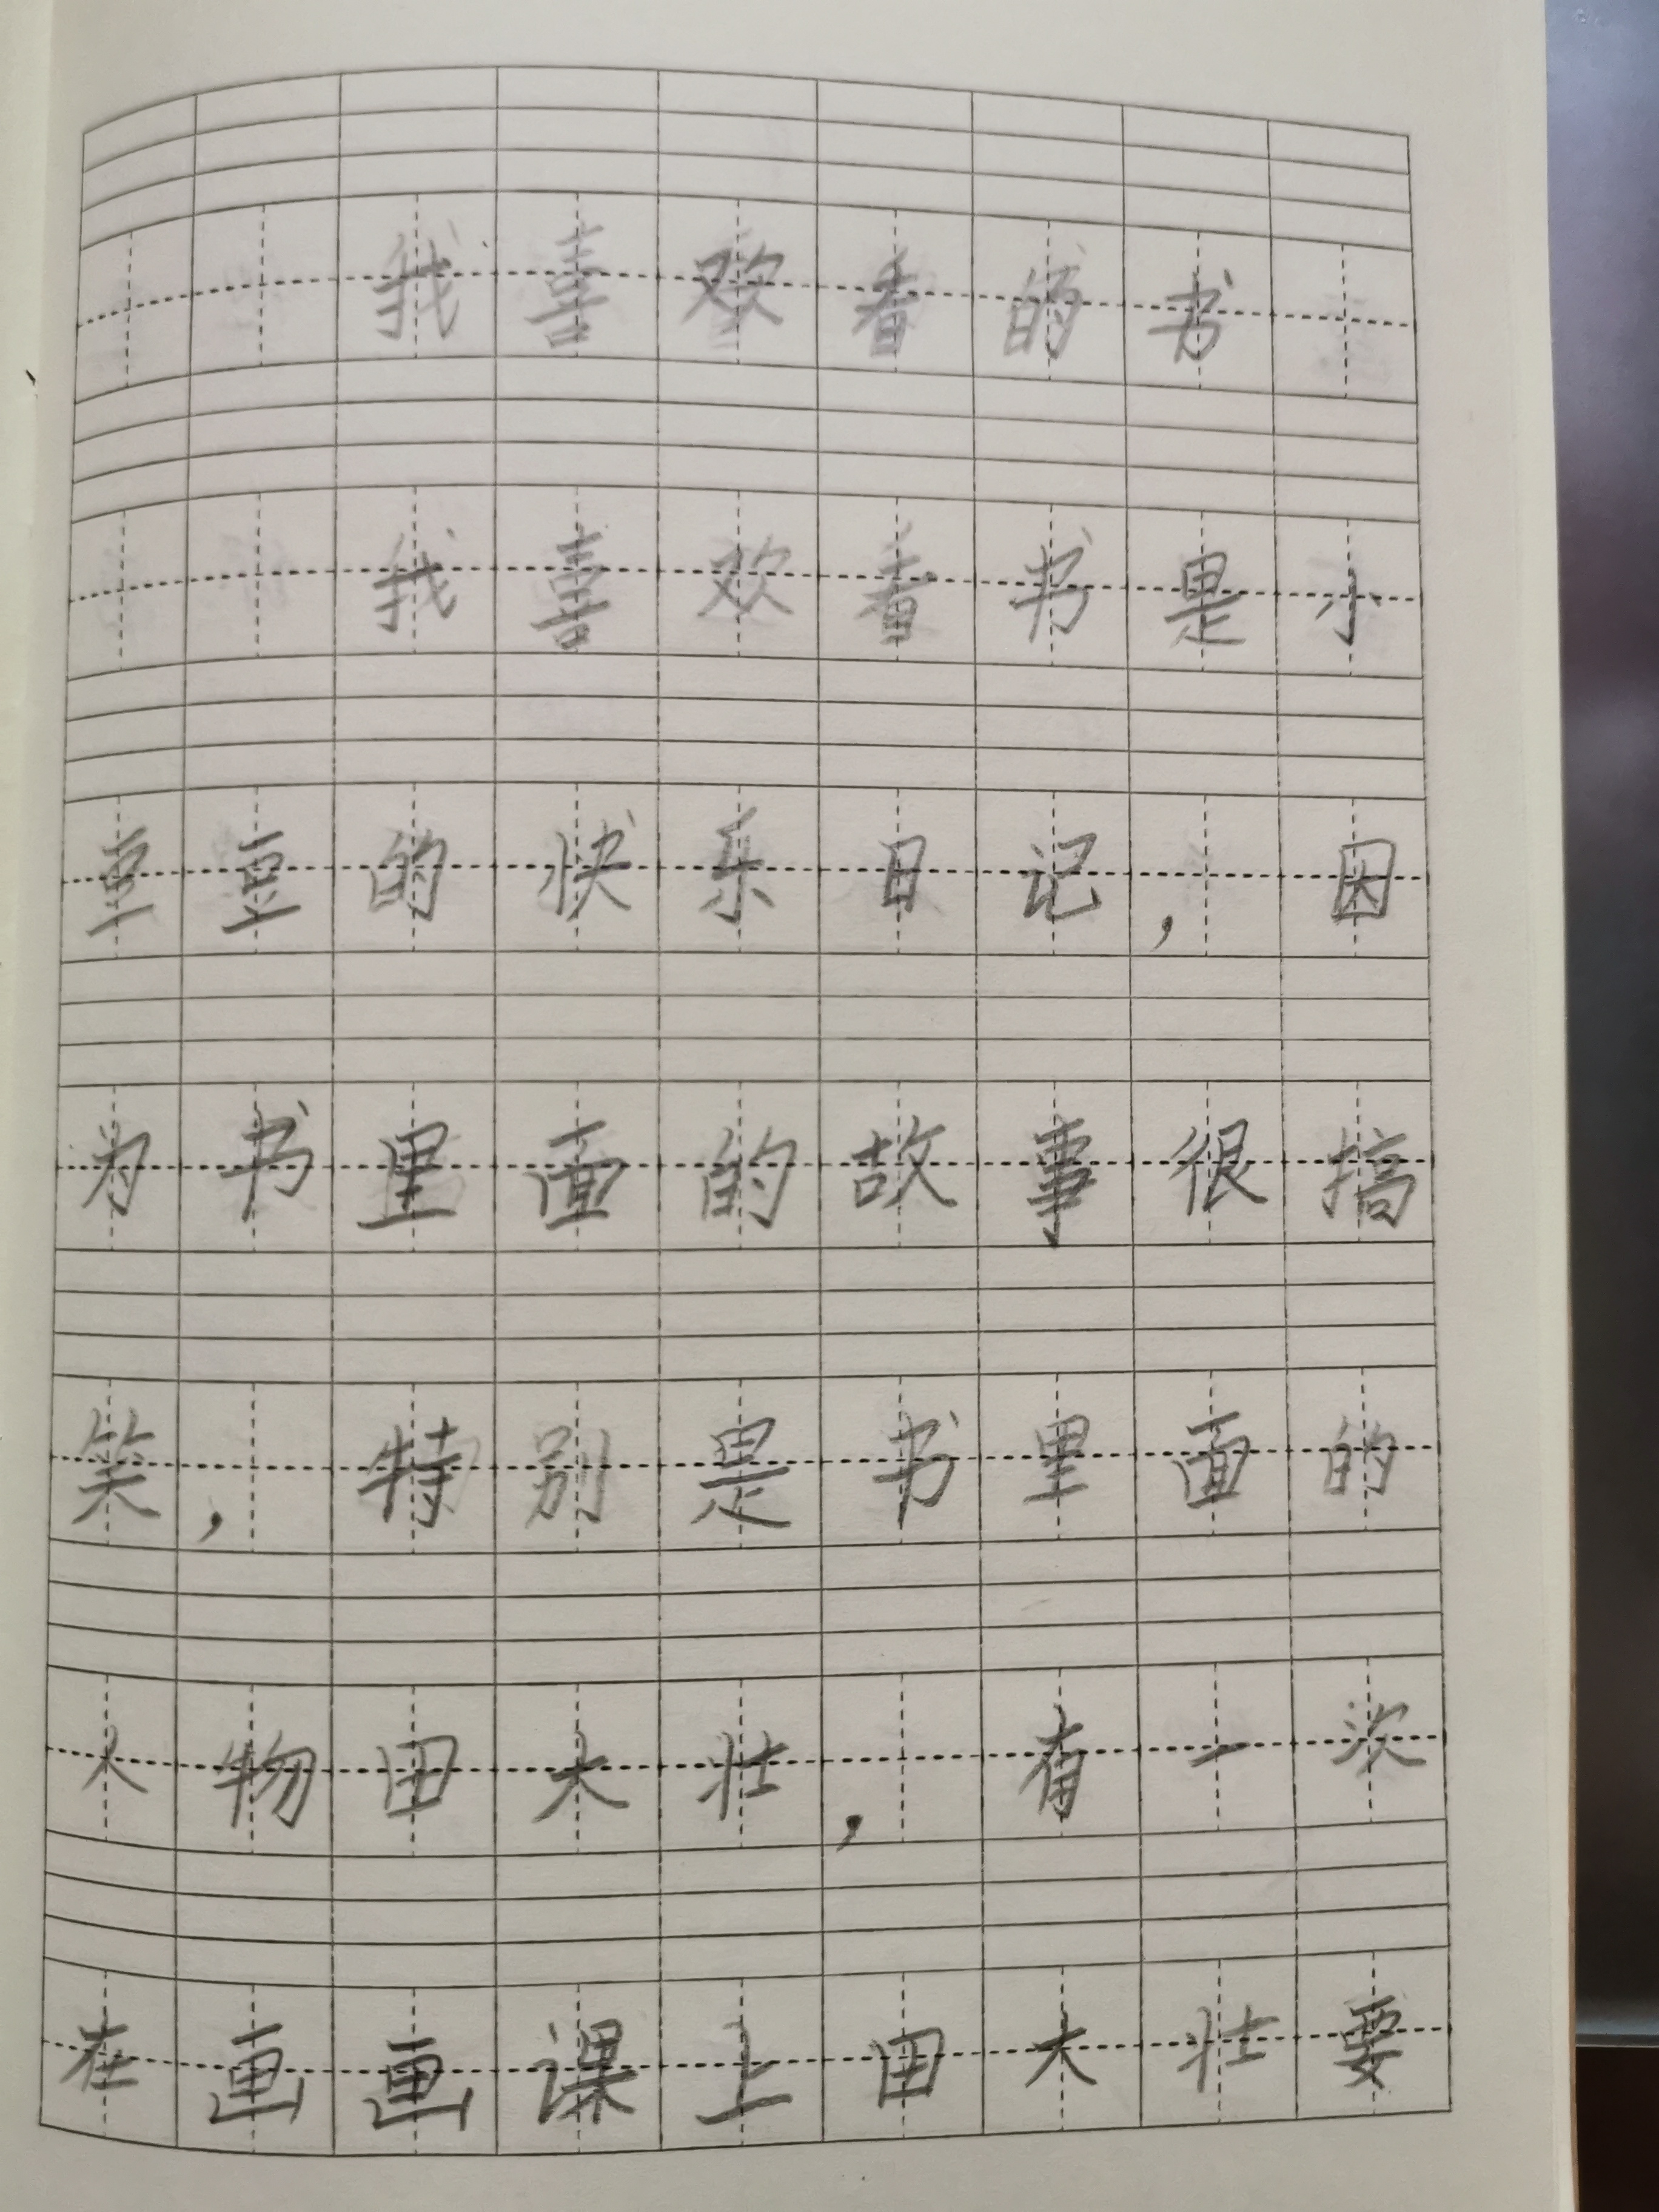 我喜欢看的书
我喜欢看书是小
的快乐日记，因
为书里面的故事很搞
笑，特别是书里面的
人物田大壮，有一次
在画画课上田大壮要